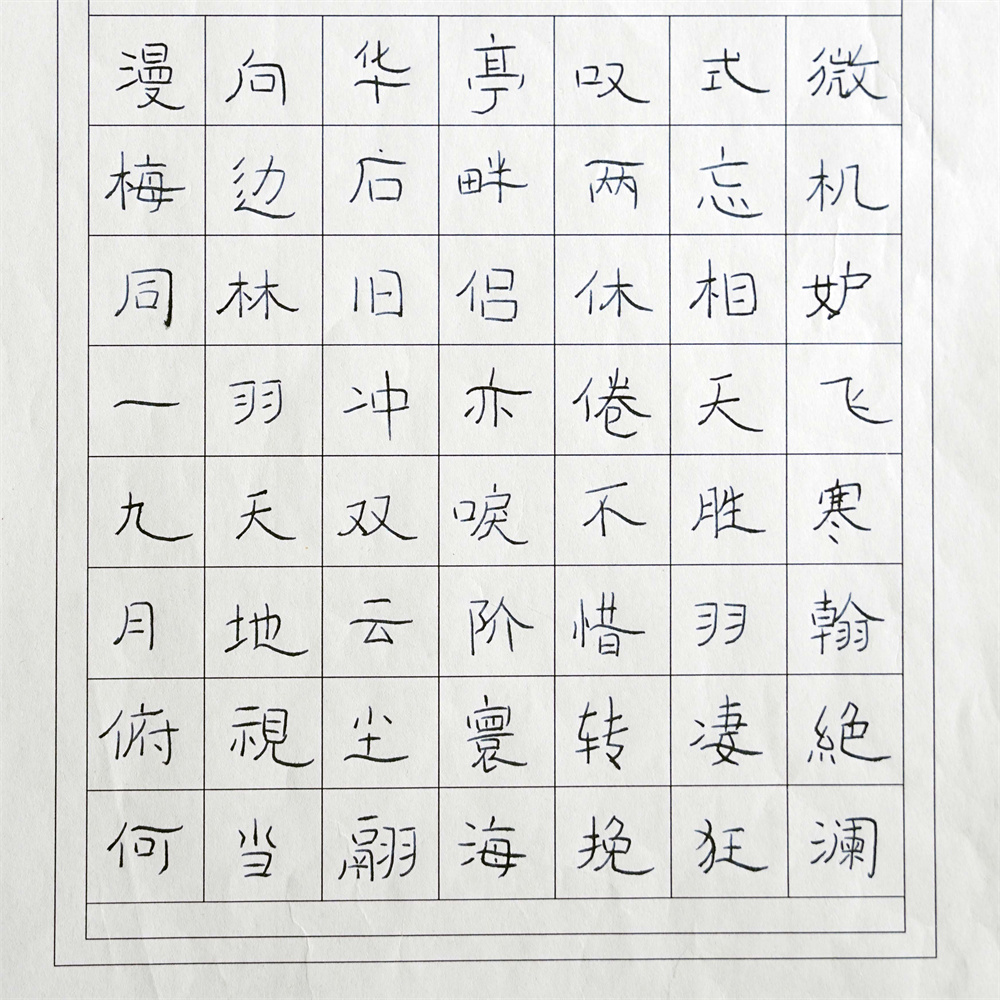 漫向华亭叹式微
梅边后畔两忘机
同林旧侣休相妒
一羽冲亦倦天飞
九天双唳不胜寒
月地云阶惜羽翰
俯視尘寰转凄絶
何当翮海挽狂澜